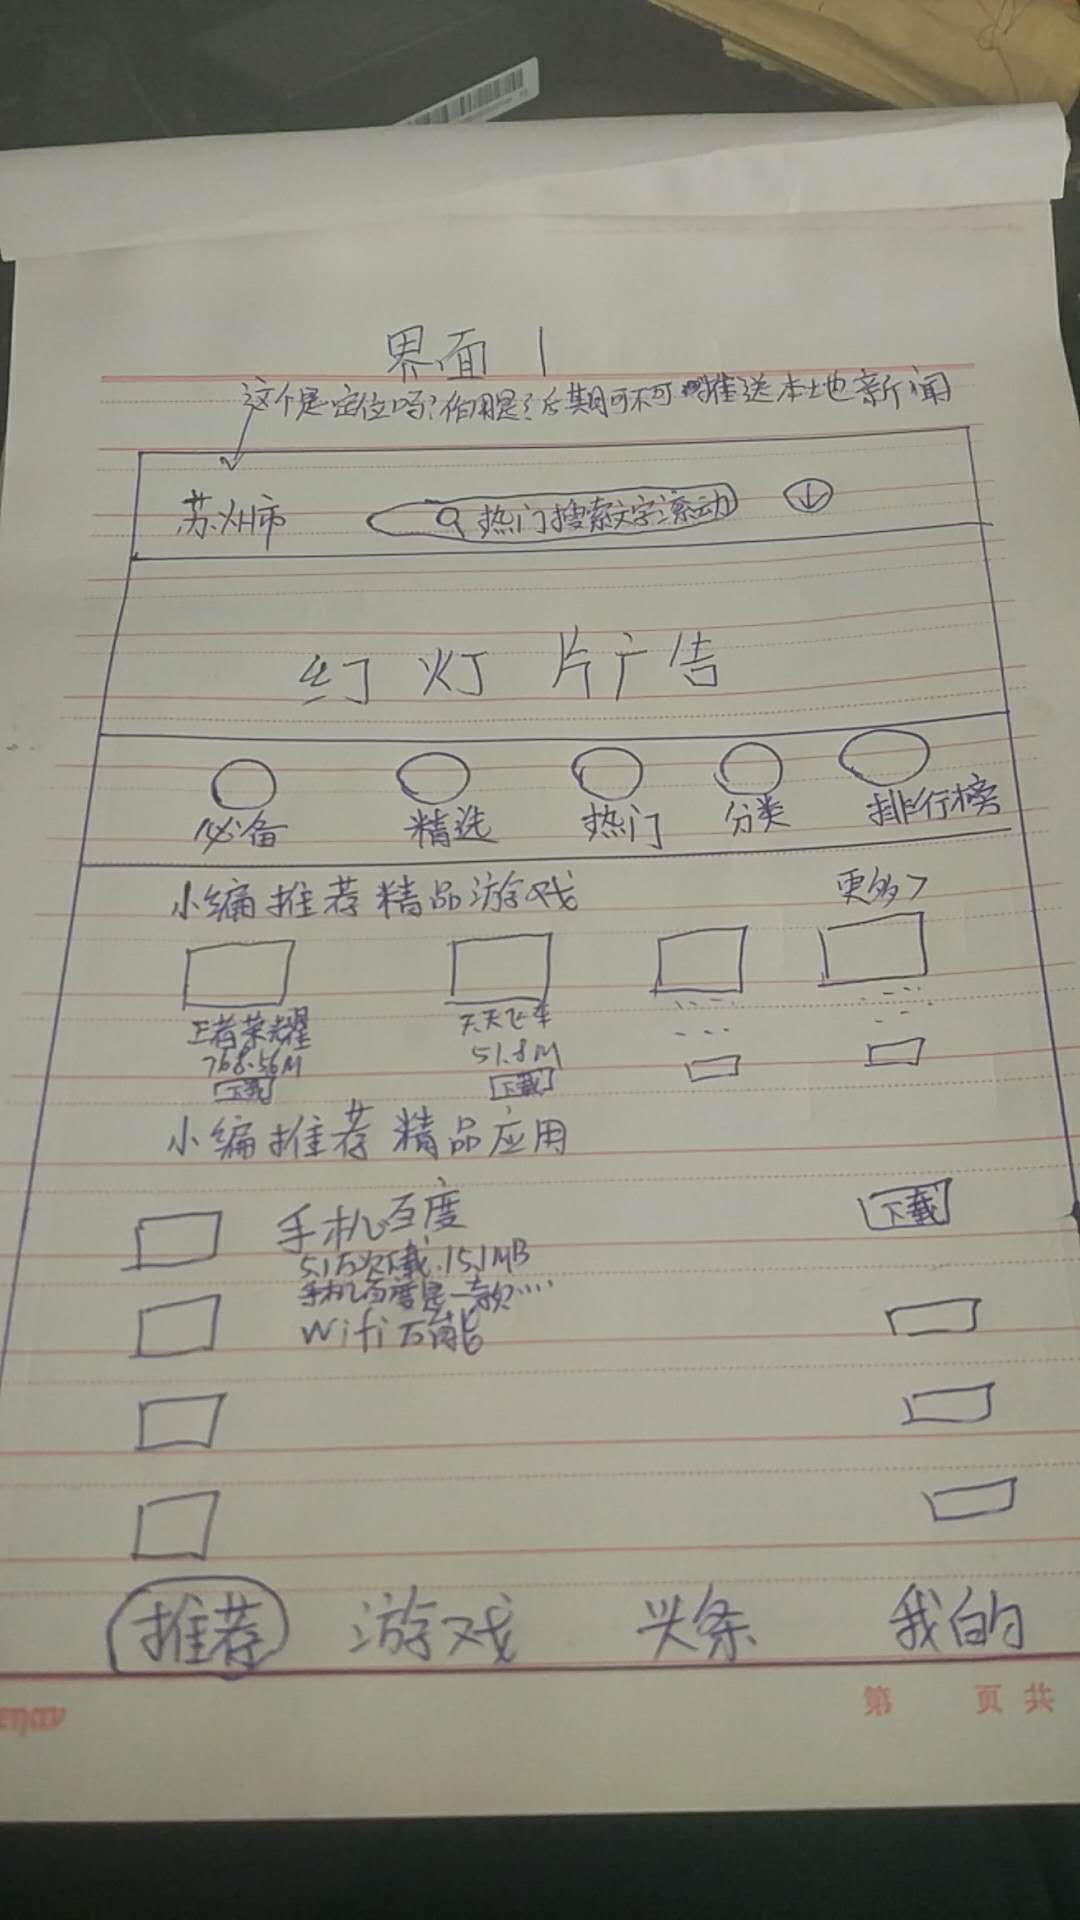 界面 1
这个是定位吗?作用是?后期可不可推送本地新闻
苏州市 热门搜索文字滚动
幻灯片广告
必备 精选 热门 分类 排行榜
小编推荐精品游戏 更多>
王者荣耀 天天飞车
768.56M 51.8M
下载 下载
小编推荐精品应用
手机百度 下载
51万次下载.151MB
手机百度是一款……
Wifi万能
推荐 游戏 头条 我的
第 页 共